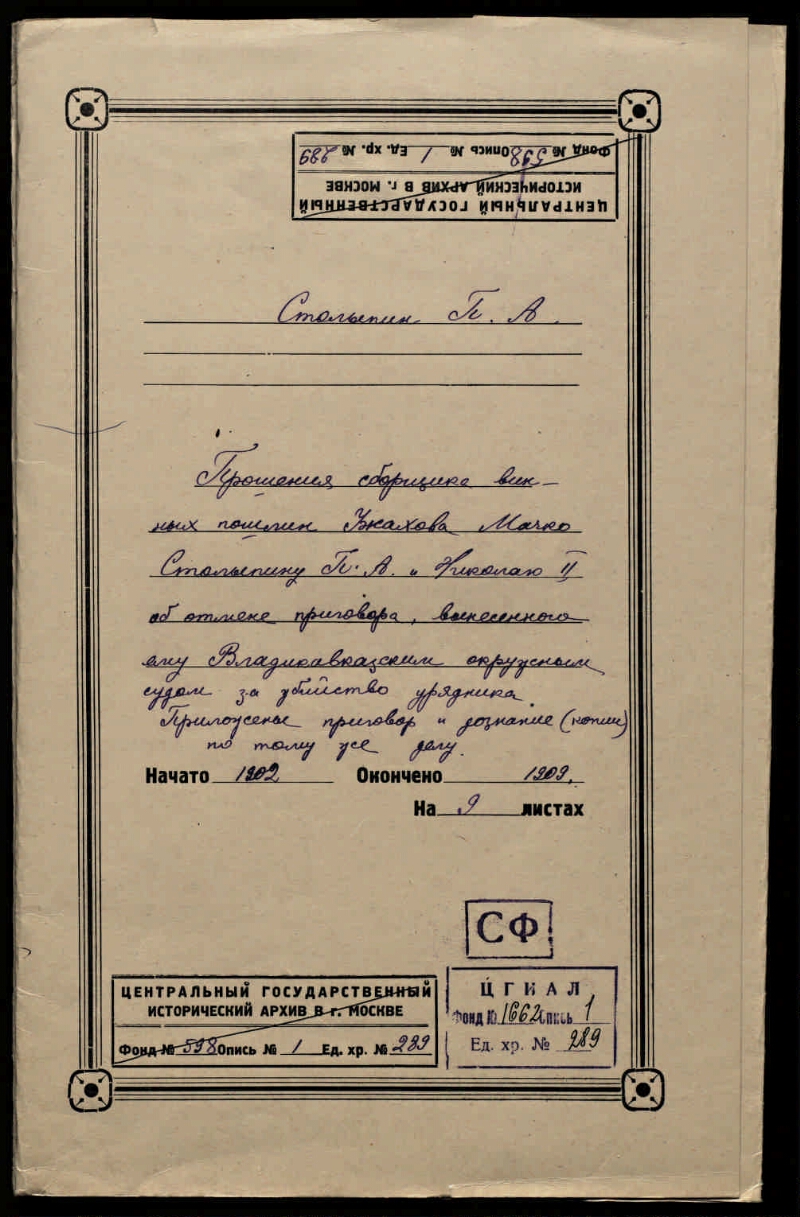 ЦЕНТРАЛЬНЫЙ ГОСУДАРСТВЕННЫЙ
ИСТОРИЧЕСКИЙ АРХИВ В Г. МОСКВЕ
Фонд № 598 Опись № 1 Ед. хр. № 289
Столыпин П. А.
Прошения сборщика вин-
ных пошлин Ужахова Мачко
Столыпину П. А. и Николаю II
об отмене приговора, вынесенного
ему Владикавказским окружным
судом за убийство урядника.
Приложены приговор и дознание (копии)
по тому же делу.
Начато 1902 Окончено 1909.
На 9 листах
СФ
ЦЕНТРАЛЬНЫЙ ГОСУДАРСТВЕННЫЙ
ИСТОРИЧЕСКИЙ АРХИВ В г. МОСКВЕ
Фонд № 598 Опись № 1 Ед. хр. № 289
ЦГИАЛ
Фонд № 1662 Опись 1
Ед. хр. № 289